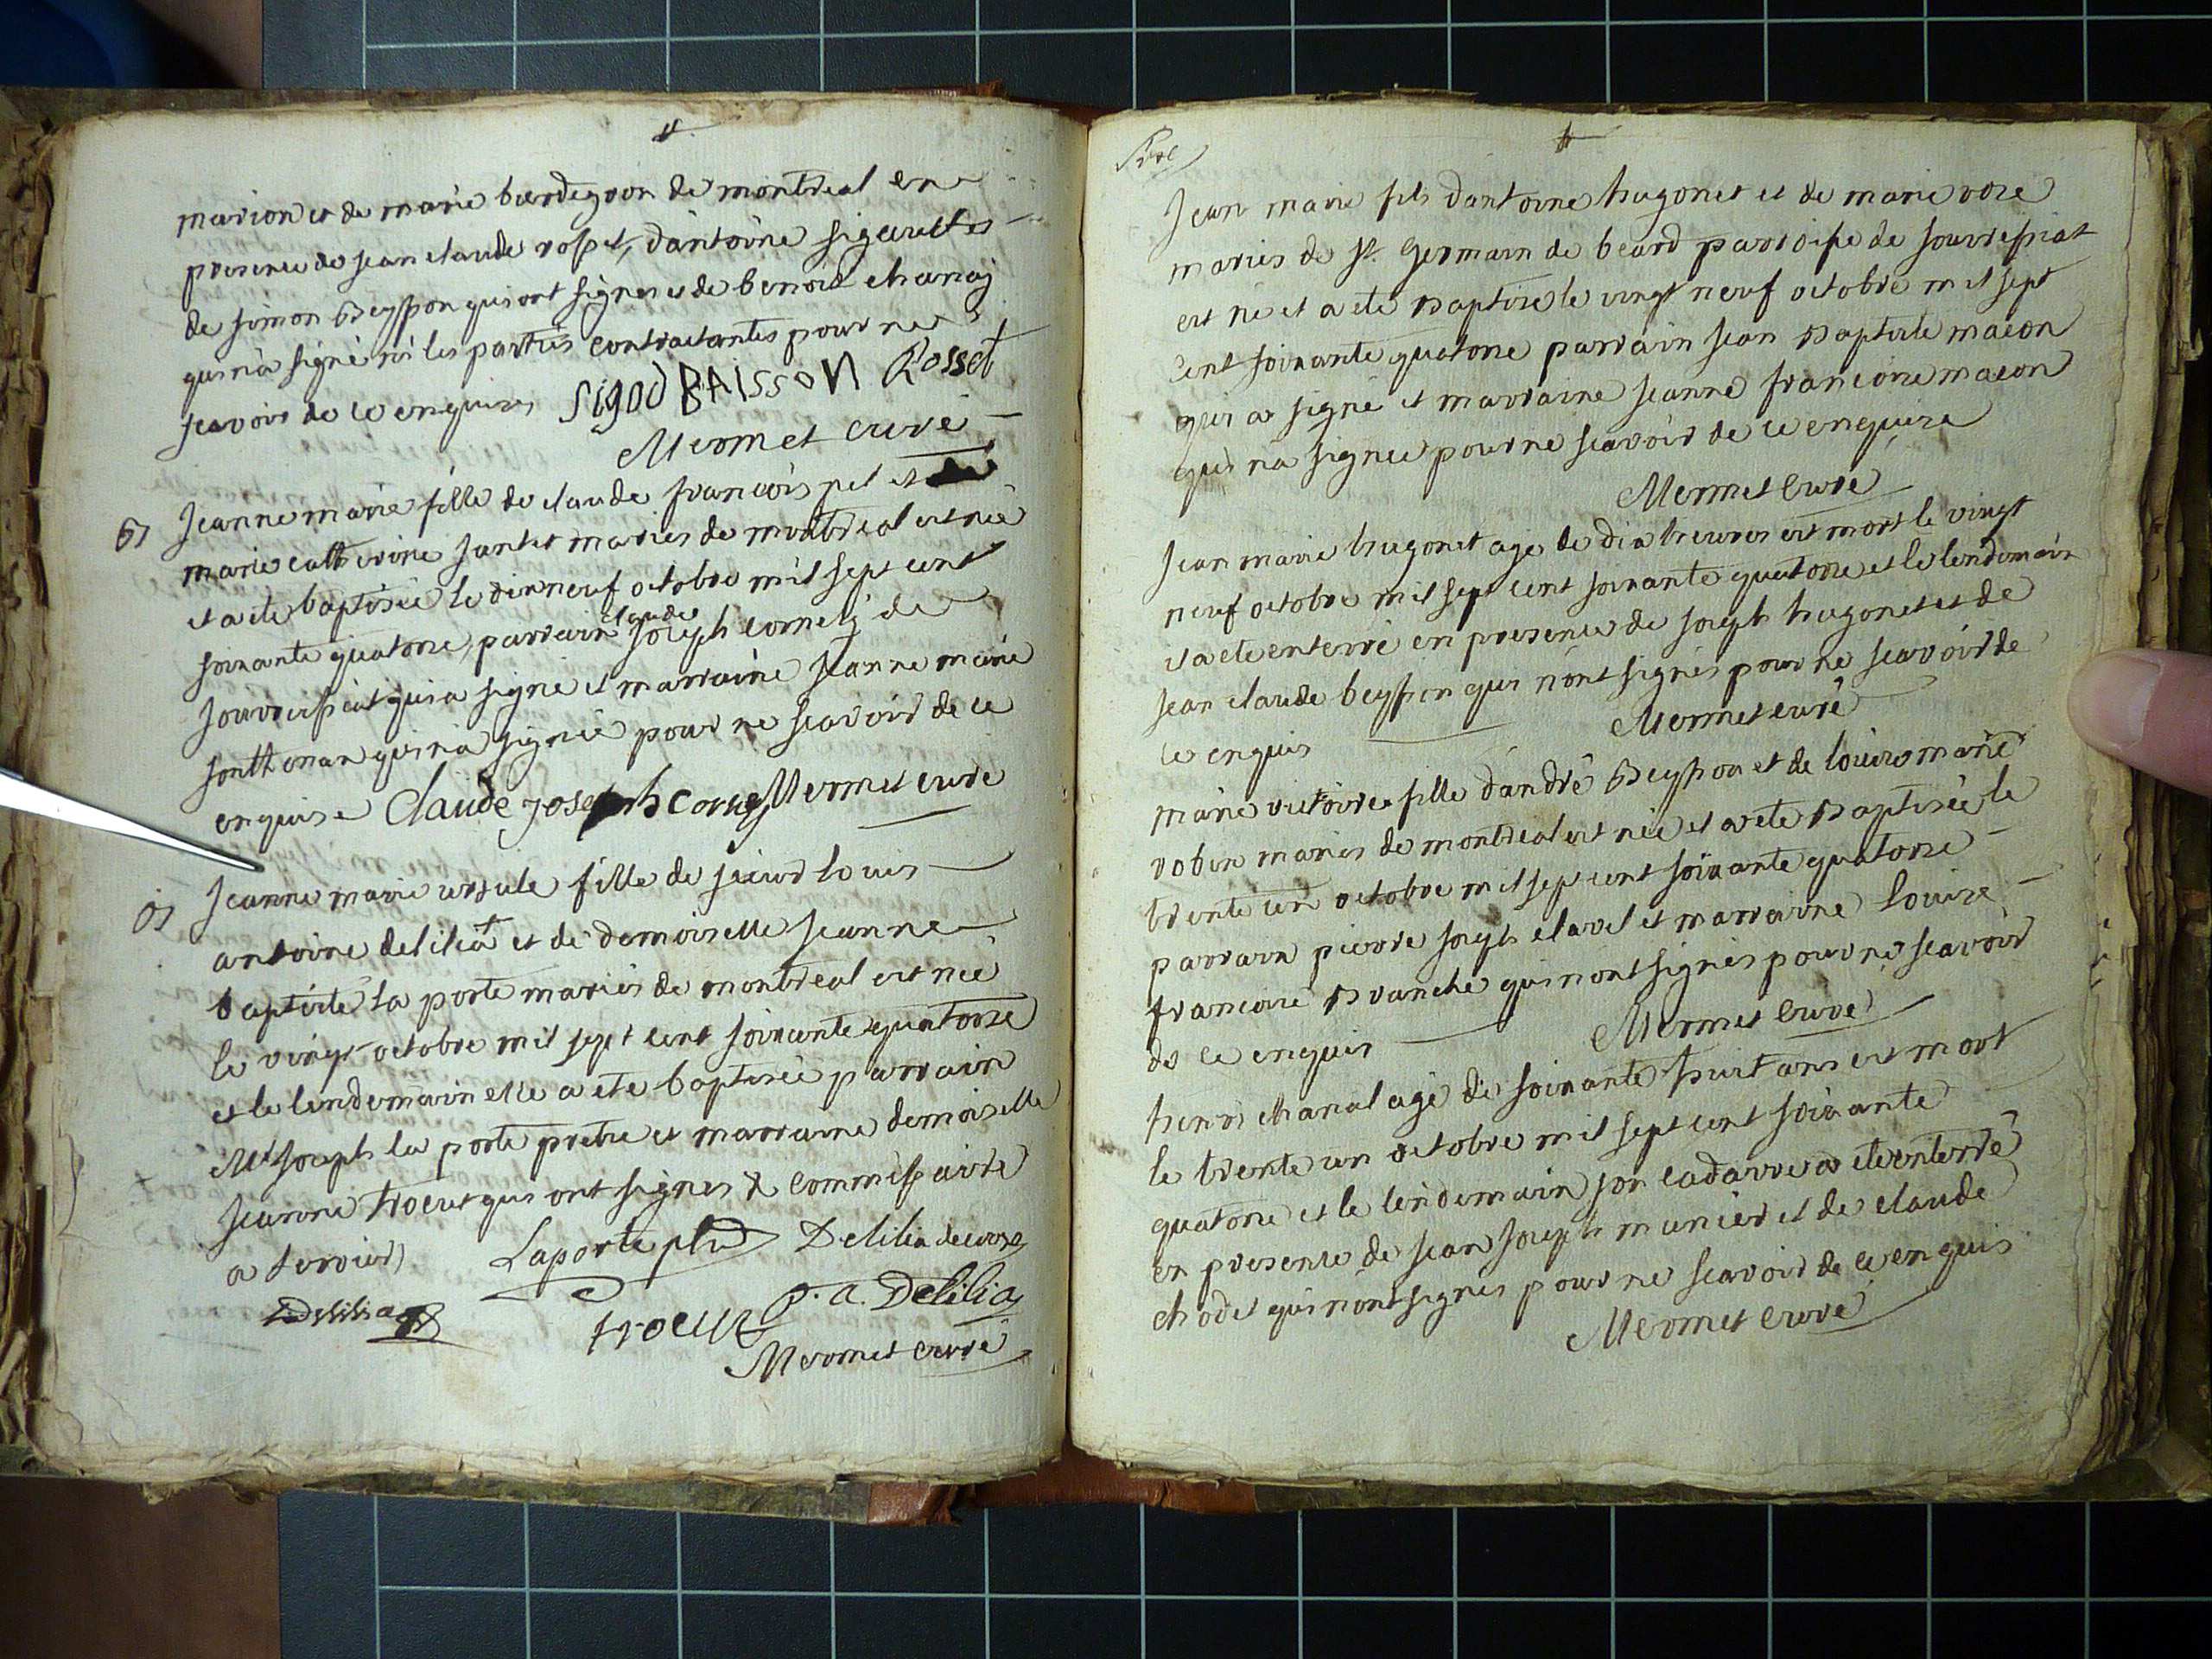 marion et de marie bordegron de montreal en
presence de jean claude rosset, d'antoine sigaud et
de simon Beysson qui ont signes et de benoit chanaj
qui n'a signé ni les partiés contractantes pour ne
scavoir de ce enquises Sigod BAISSON Rosset
Mermet curé
Jeanne marie fille de claude francois pel et
marie catherine jantet mariés de montreal est née
et a ete baptisée le dixneuf octobre mil sept cent
claude
soixante quatorse, parrain joseph cornetj de
qui a signé et marraine jeanne marie
sonthonax qui n'a signée pour ne scavoir de ce
enquise Claude joseph Mermet curé
Jeanne marie ursule fille de sieur louis
antoine deliliat et de demoiselle jeanne
baptiste la porte mariés de montreal est née
le vingt octobre mil sept cent soixante quatorse
et le lendemain elle a ete baptisée parrain
Mr joseph la porte pretre et marraine demoiselle
jeanne trocu qui ont signes & commissaire
a terrier Laporte ptre Delilia
Delilia p. a. Delilia
trocu
Mermet curé
Jean marie fils d'antoine hugonet et de marie
mariés de st. germain de beard parroisse de
est né et a ete Baptisé le vingt neuf octobre mil sept
cent soixante quatorse parrain jean Baptiste macon
qui a signé et marraine jeanne francoise macon
qui n'a signée pour ne scavoir de ce enquise
Mermet curé
Jean marie hugonet agé de dix heures est mort le vingt
neuf octobre mil sept cent soixante quatorse et le lendemain
il a ete enterré en presence de joseph hugonet et de
jean claude beysson qui n'ont signés pour ne scavoir de
ce enquis Mermet curé
marie victoire fille d'andré Beysson et de louise marie
robin mariés de montreal est née et a ete Baptisée le
trente un octobre mil sept cent soixante quatorse
parrain pierre joseph clavel et marraine louise
francoise Branche qui n'ont signés pour ne scavoir
de ce enquis Mermet curé
henri chanal agé de soixante huit ans est mort
le trente un octobre mil sept cent soixante
quatorse et le lendemain son cadavre a ete enterré
en presence de jean joseph munier et de claude
chodet qui n'ont signés pour ne scavoir de ce enquis
Mermet curé